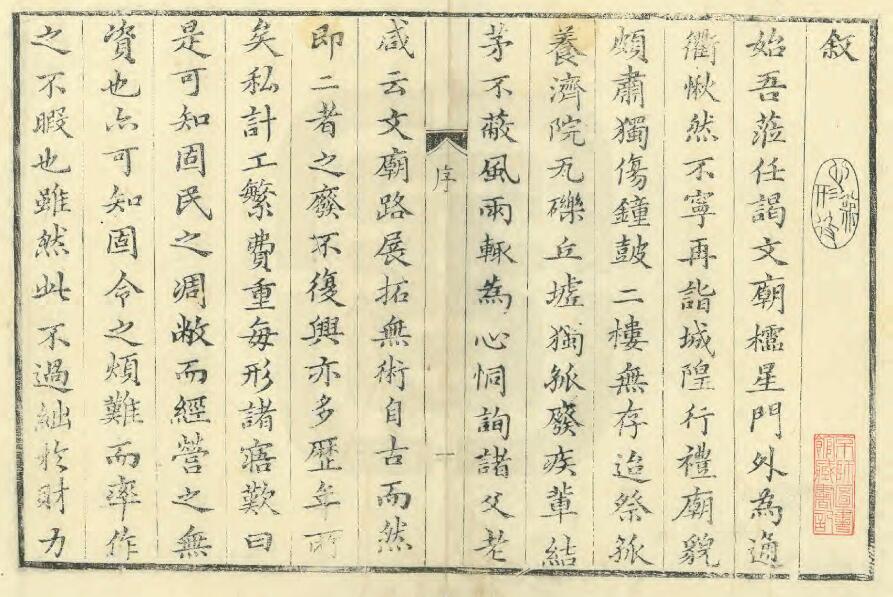 叙
京師圖書
館藏書記
始吾蒞任謁文廟櫺星門外為通
衢愀然不寧再詣城隍行禮廟貌
頗肅獨傷鐘皷二樓無存迨祭孤
養濟院瓦礫丘墟獨孤廢疾輩結
茅不蔽風雨輒為心恫詢諸父老
序
一
咸云文廟路展拓無術自古而然
即二者之廢不復興亦多歷年所
矣私計工繁費重每形諸寤歎曰
是可知固民之凋敝而經營之無
資也亦可知固令之煩難而率作
之不暇也雖然此不過絀於財力